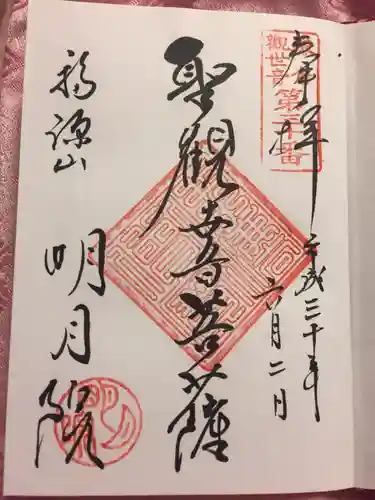 奉拝
平成三十年
六月二日
観世音
第三十番
聖観世音菩薩
福源山
明月院